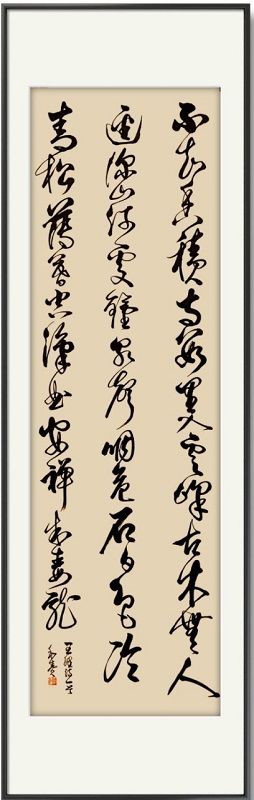 不知香積寺數里入雲峰古木無人
逕深山何處鐘泉聲咽危石日色冷
青松薄暮空潭曲安禪制毒龍
王維詩一首